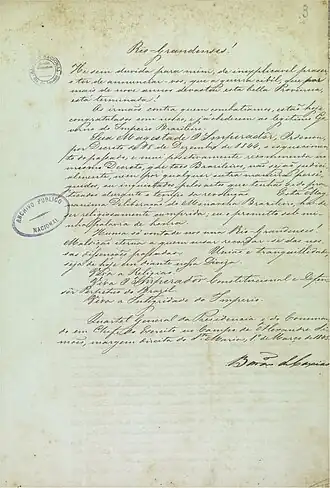 3
Rio-Grandenses!
He sem duvida para mim, de inexplicavel prazer
o ter de annunciar-vos, que a guerra civil, que por
mais de nove annos devastou esta bella Provincia,
está terminada.
Os irmãos contra quem combatiamos, estão hoje
congratulados com nosco, e já obedecem ao legitimo Go-
verno do Imperio Brasileiro.
Sua Magestade O Imperador, Ordenou
por Decreto de 18 de Dezembro de 1844, o esquecimen-
to do passado, e mui positivamente recommenda no
mesmo Decreto, que taes Brasileiros, não sejão judici-
almente, nem por qualquer outra maneira, perse-
guidos, ou inquietados pelos actos que tenhão sido pra-
ticados durante o tempo da revolução. Esta Ma-
gnanima Deliberação do Monarcha Brasileiro, ha de
ser religiosamente cumprida, eu o prometto sob mi-
nha palavra de honra.
Huma só vontade nos una Rio-Grandenses!
Maldição eterna a quem ousar recordar-se das nos-
sas dissenções passadas. União e tranquillidade
seja de hoje em diante nossa Divisa.
Viva a Religião
Viva O Imperador Constitucional e Defen-
sor Perpetuo do Brazil
Viva a Integridade do Imperio.
Quartel General da Presidencia e do Comman-
do em Chefe do Exercito no Campo de Alexandre Si-
mões, margem direita de Sta Maria, 1º de Março de 1845.
Barão de Caxias
ARCHIVO PUBLICO
NACIONAL